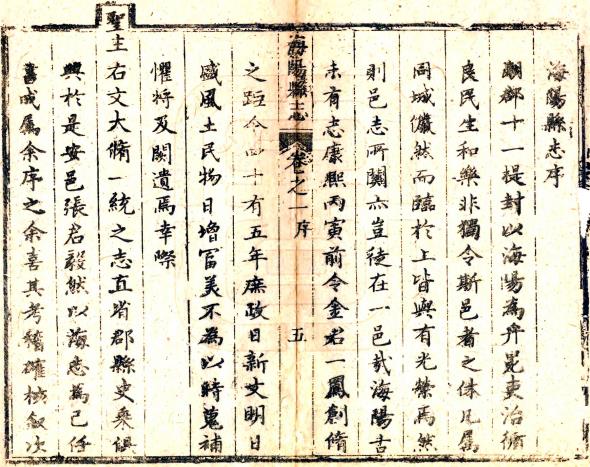 海陽縣志序
潮郡十一提封以海陽為弁冕吏治循
良民生和樂非獨令斯邑者之休凡属
同城儼然而臨於上皆與有光榮焉然
則邑志所關亦豈徒在一邑哉海陽古
未有志康熙丙寅前令金君一鳳創脩
海陽縣志 卷之一 序 五
之距今四十有五年庶政日新文明日
盛風土民物日增富美不為以時蒐補
懼將及闕遺焉幸際
聖主右文大脩一統之志直省郡縣史乘俱
興於是安邑張君毅然以海志為己任
書成属余序之余喜其考稽確核叙次